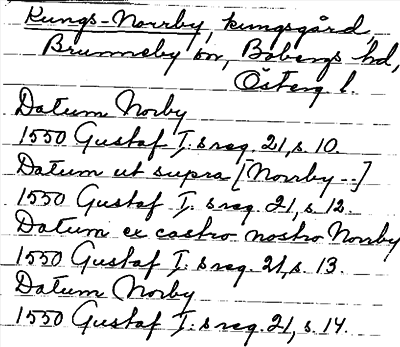 Kungs-Norrby, kungsgård
Brunneby sn, Bobergs hd,
Österg l.
Datum Norby
1550 Gustaf I:s reg. 21, s. 10.
Datum ut supra [Norrby --]
1550 Gustaf I:s reg. 21, s. 12.
Datum ex castro nostro Norrby
1550 Gustaf I:s reg. 21, s. 13.
Datum Norby
1550 Gustaf I:s reg. 21, s. 14.